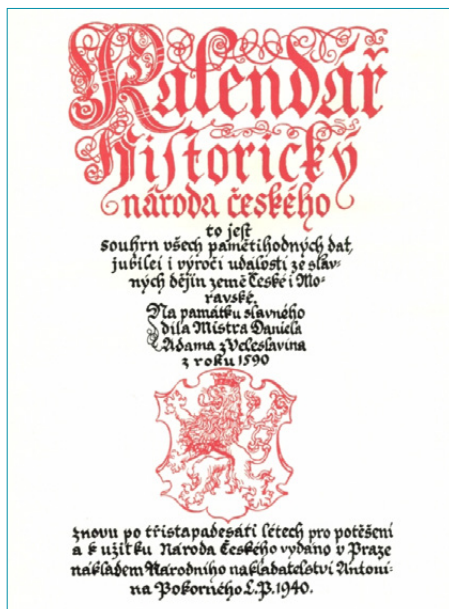 Kalendář
Historický
národa českého
to jest
souhrn všech pamětihodných dat,
jubilei i výročí událostí ze slav-
ných dějin země České i Mo-
ravské.
Na památku slavného
díla Mistra Daniela
Adama z Veleslavína
z roku 1590
znovu po třistapadesáti létech pro potěšení
a k užitku Národa Českého vydáno v Praze
nákladem Národního nakladatelství Antoní-
na Pokorného L.P. 1940.